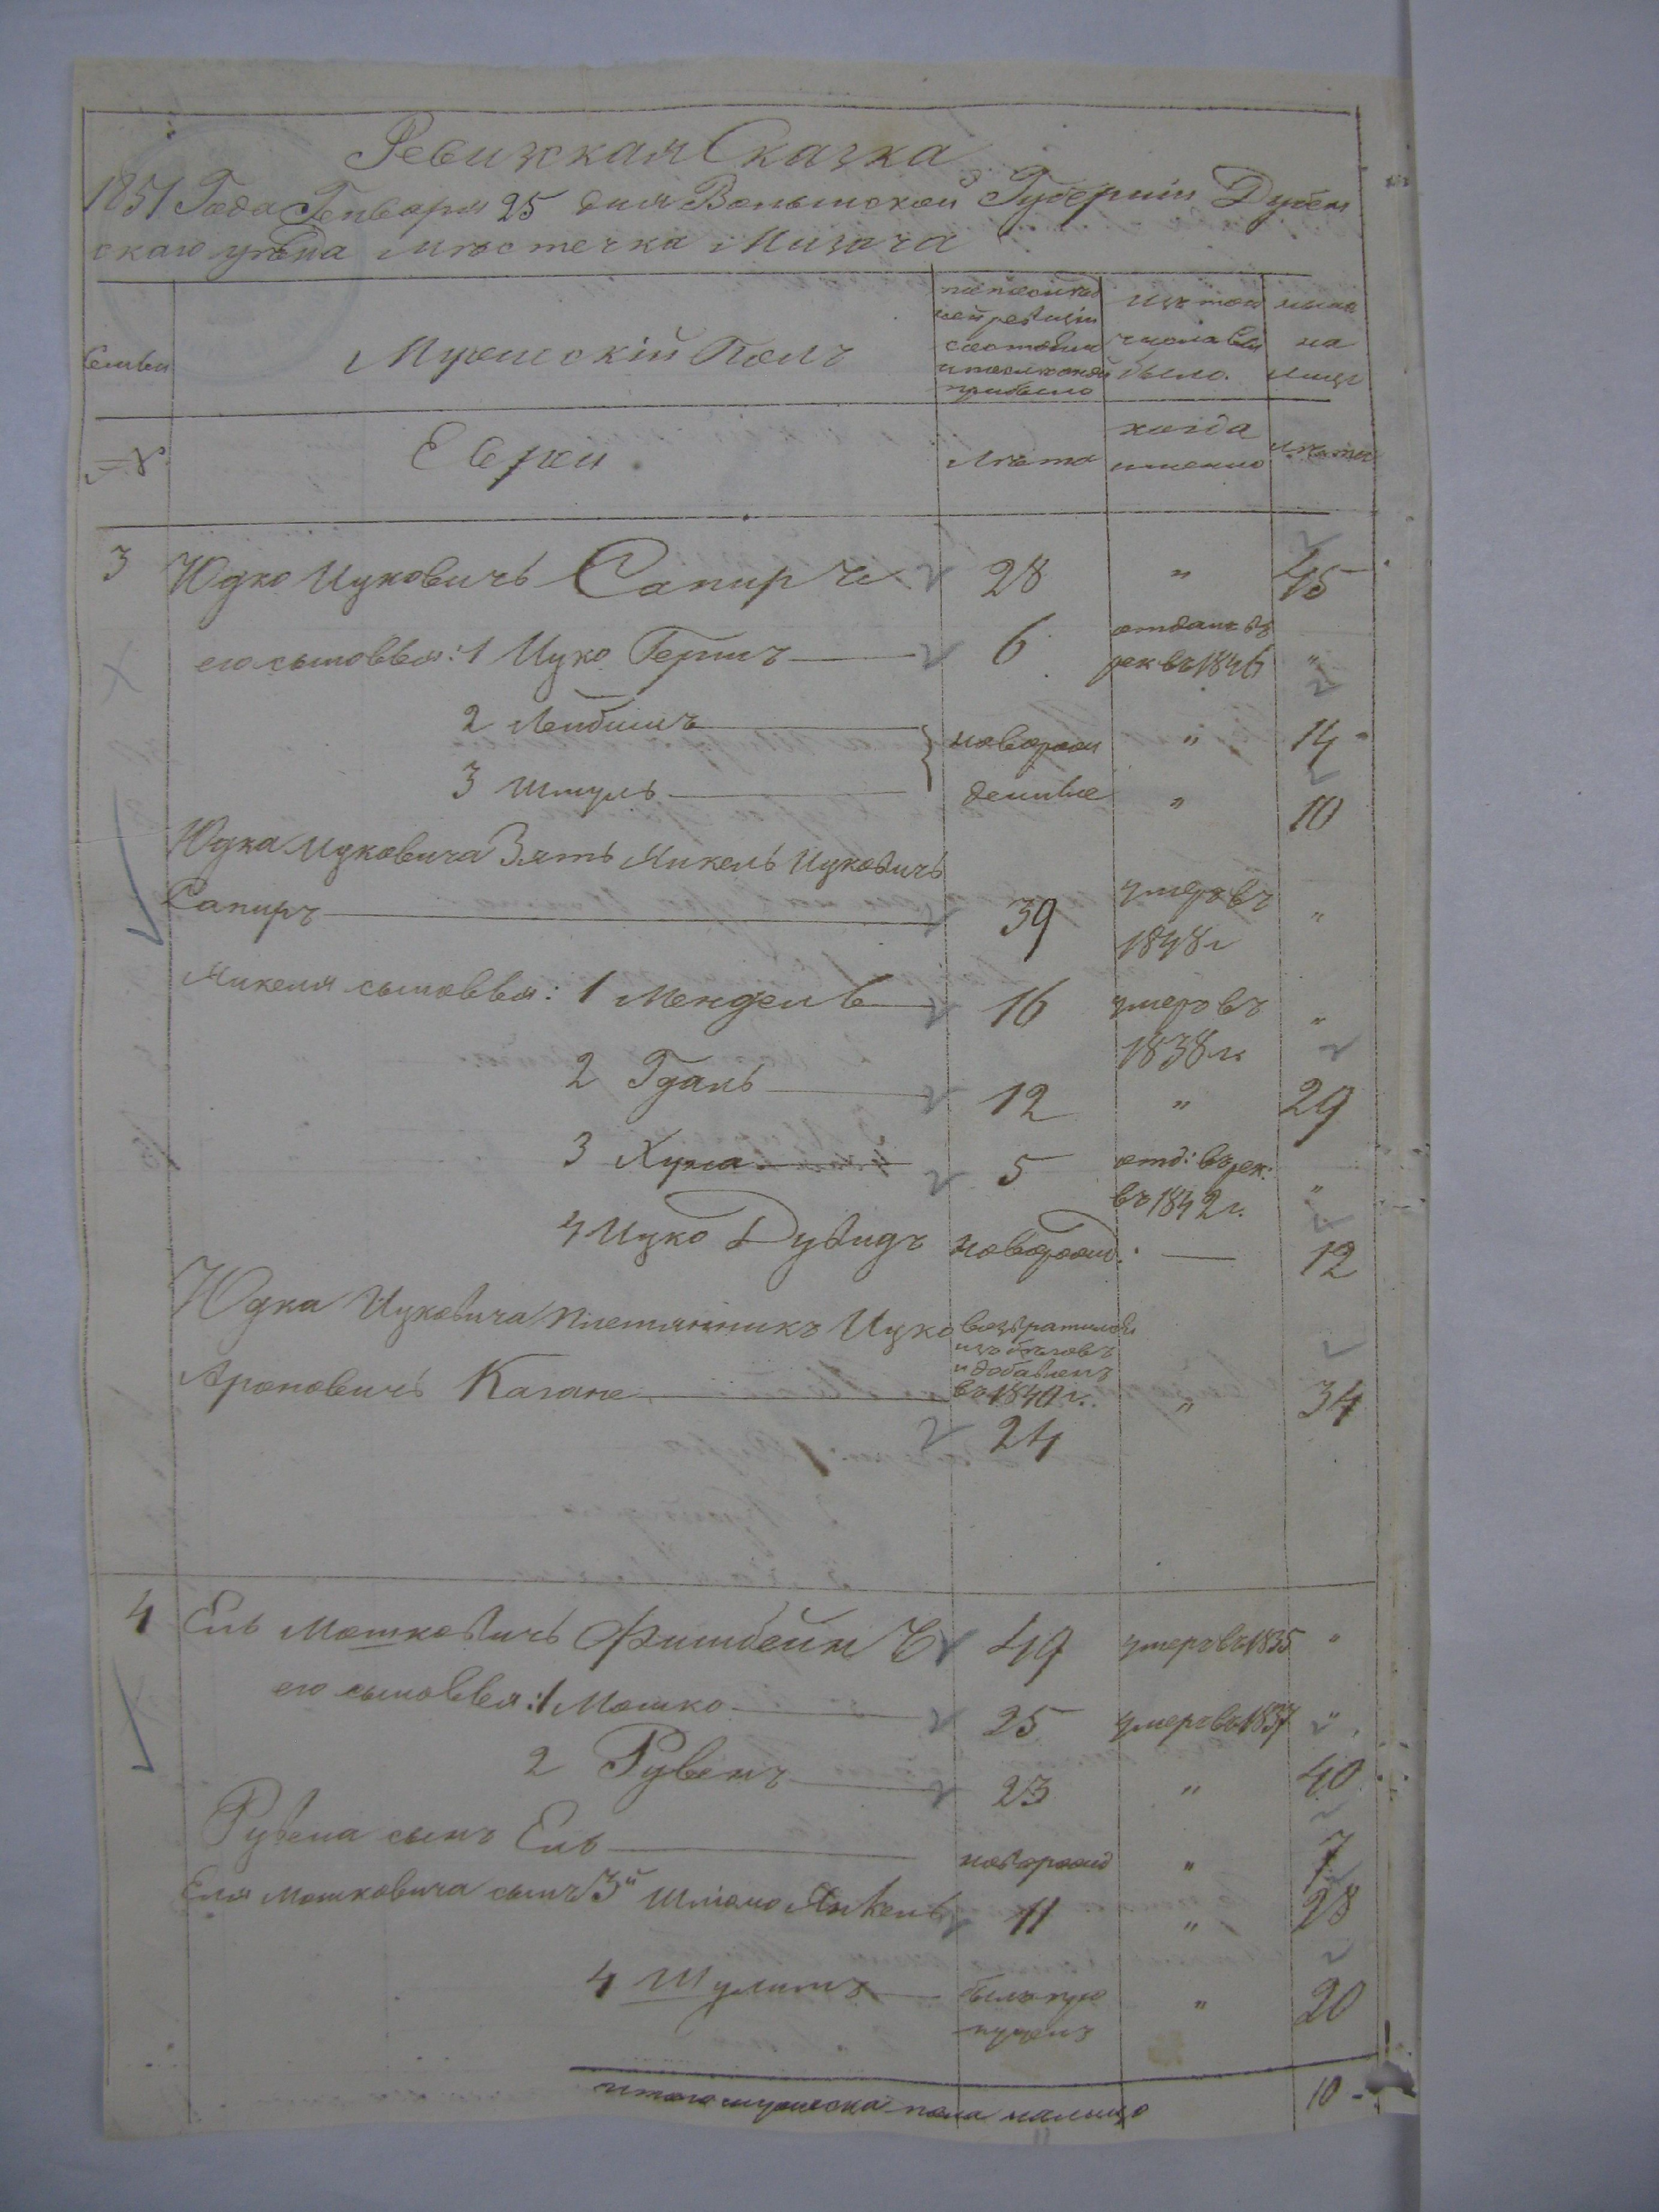 Ревижская Сказка
1851 Года Генваря 25 дня Волынской Губернии Дубен
скаго уѣзда мѣстечка Мизоча
Семьи
Мужескій Полъ
по послѣд
ней ревизіи
состояло
и после оной
прибыло
изъ того
числа вы
было.
ныне
на
лицо
№
Евреи
лѣта
когда
именно
лѣта
3 Юдко Ицковичъ Сапиръ 28 " 45
его сыновья: 1 Ицко Гершъ 6 отданъ въ
рек въ 1846 "
2 Лейбишъ новорож " 14
3 Шмуль денные " 10
Юдка Ицковича Зять Янкель Ицковичъ
Сапиръ 39 умеръ въ
1848 г "
Янкеля сыновья: 1 Мендель 16 умеръ въ
1838 г. "
2 Гдаль 12 " 29
3 Хуна 5 отд: въ рек:
въ 1842 г. "
4 Ицко Дувидъ новорожд. — 12
Юдка Ицковича племянникъ Ицко возвратился
изъ бѣговъ
и добавленъ
Ароновичъ Кагане въ 1840 г. " 34
24
4 Ель Мошковичъ Фишбейнъ 49 умеръ въ 1835 "
его сыновья: 1 Мошко 25 умеръ въ 1837 "
2 Рувенъ 23 " 40
Рувена сынъ Ель новорожд " 7
Еля Мошковича сынъ 3й Шлiомо Янкель 11 " 28
4 Шулимъ былъ про " 20
пущенъ
итого мужеска пола налицо 10